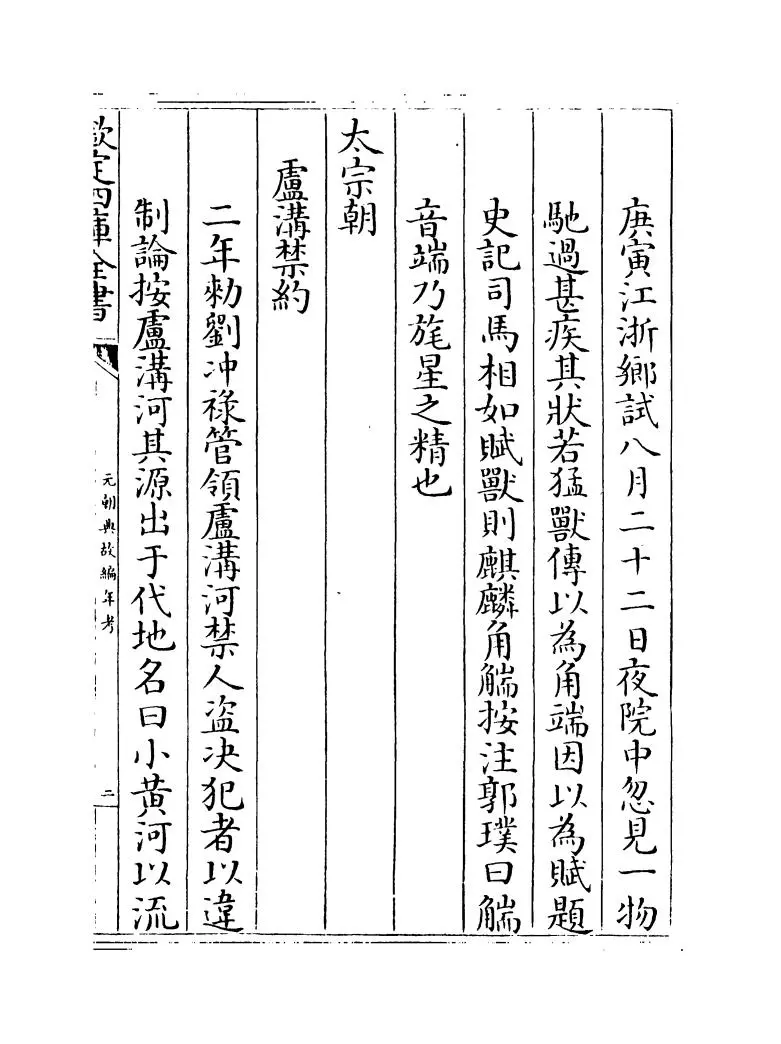 庚寅江浙鄉試八月二十二日夜院中忽見一物
馳過甚疾其狀若猛獸傳以為角端因以為賦題
史記司馬相如賦獸則麒麟角觿按注郭璞曰觿
音端乃旄星之精也
太宗朝
盧溝禁約
二年勅劉冲祿管領盧溝河禁人盜决犯者以違
制論按盧溝河其源出于代地名曰小黄河以流
欽定四庫全書
元朝典故編年考
二